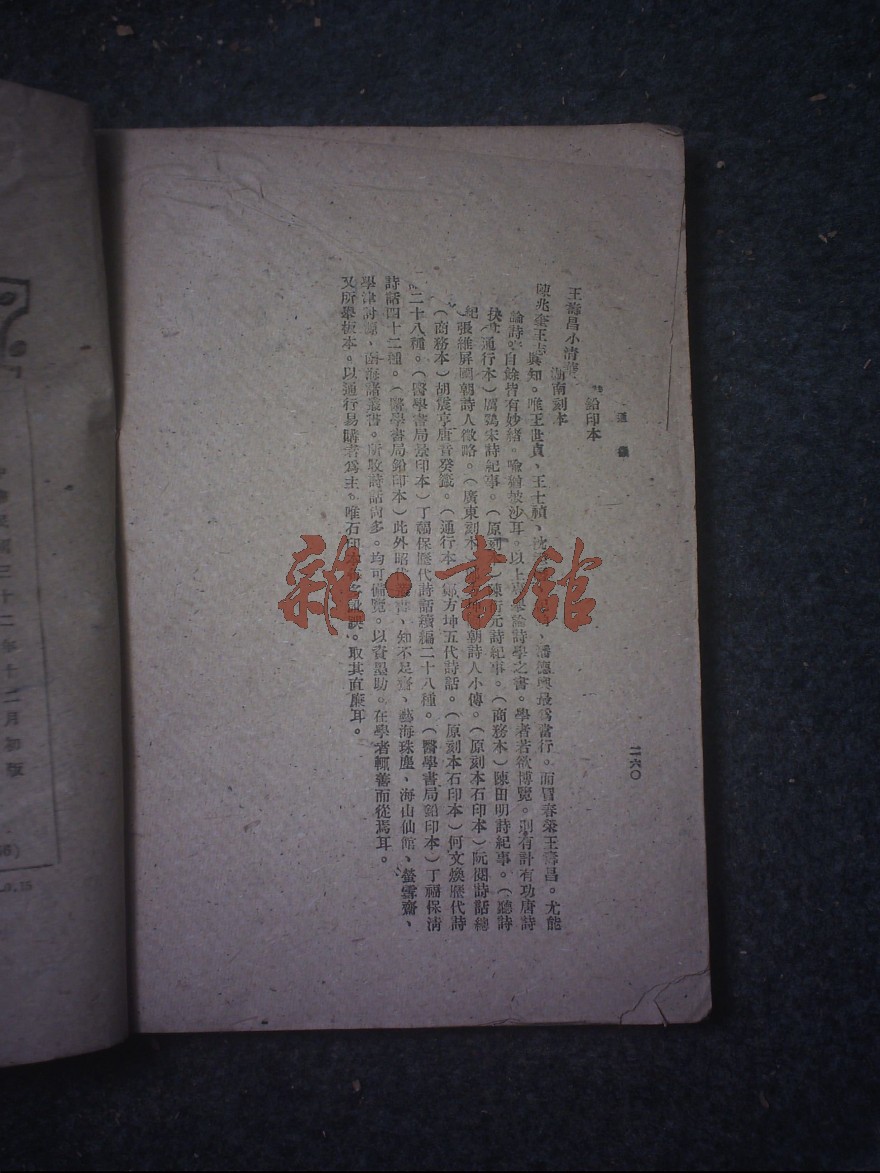 通
二六〇
鉛印本
王壽昌小清華
湖南刻本
陳兆奎王志
與知。唯王世貞、王士禎、沈
、潘德輿最爲當行。而冒春榮王壽昌。尤能
論詩
自餘皆有妙緒。喻猶披沙耳。以上
舉論詩學之書。學者若欲博覽。則有計有功唐詩
通行本）厲鶚宋詩紀事。（原刻本）陳衍元詩紀事。（商務本）陳田明詩紀事。（聽詩
紀）張維屏國朝詩人徵略。（廣東刻本
朝詩人小傳。（原刻本石印本）阮閱詩話總
（商務本）胡震亨唐音癸籤。（通行本
鄭方坤五代詩話。（原刻本石印本）何文煥歷代詩
二十八種。（醫學書局景印本）丁福保歷代詩話續編二十八種。（醫學書局鉛印本）丁福保淸
詩話四十二種。（醫學書局鉛印本）此外昭
叢書、知不足齋、藝海珠塵、海山仙館、螢雪齋、
學津討源、函海諸叢書。所收詩話尚多。均可備覽。以資墨助。在學者輒善而從焉耳。
又所舉板本。以通行易購者爲主。唯石印
多
誤。取其直廉耳。
雜·書館
民國三十二年十二月初版